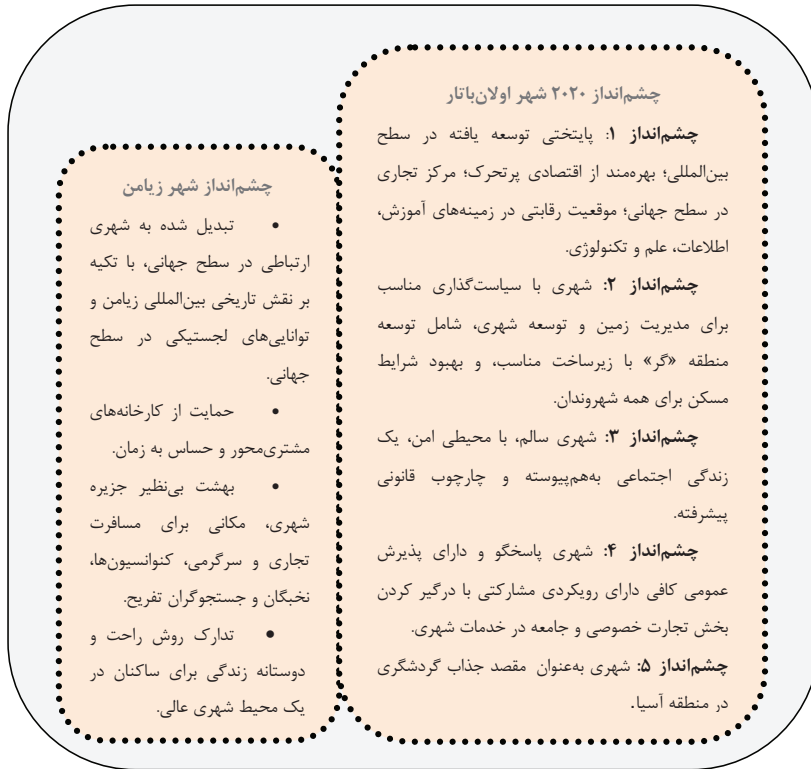 چشم‌انداز ۲۰۲۰ شهر اولان‌باتار
چشم‌انداز ۱: پایتختی توسعه یافته در سطح
بین‌المللی؛ بهره‌مند از اقتصادی پرتحرک؛ مرکز تجاری
در سطح جهانی؛ موقعیت رقابتی در زمینه‌های آموزش،
اطلاعات، علم و تکنولوژی.
چشم‌انداز ۲: شهری با سیاست‌گذاری مناسب
برای مدیریت زمین و توسعه شهری، شامل توسعه
منطقه «گر» با زیرساخت مناسب، و بهبود شرایط
مسکن برای همه شهروندان.
چشم‌انداز ۳: شهری سالم، با محیطی امن، یک
زندگی اجتماعی به‌هم‌پیوسته و چارچوب قانونی
پیشرفته.
چشم‌انداز ۴: شهری پاسخگو و دارای پذیرش
عمومی کافی دارای رویکردی مشارکتی با درگیر کردن
بخش تجارت خصوصی و جامعه در خدمات شهری.
چشم‌انداز ۵: شهری به‌عنوان مقصد جذاب گردشگری
در منطقه آسیا.
چشم‌انداز شهر زیامن
• تبدیل شده به شهری
ارتباطی در سطح جهانی، با تکیه
بر نقش تاریخی بین‌المللی زیامن و
توانایی‌های لجستیکی در سطح
جهانی.
• حمایت از کارخانه‌های
مشتری‌محور و حساس به زمان.
• بهشت بی‌نظیر جزیره
شهری، مکانی برای مسافرت
تجاری و سرگرمی، کنوانسیون‌ها،
نخبگان و جستجوگران تفریح.
• تدارک روش راحت و
دوستانه زندگی برای ساکنان در
یک محیط شهری عالی.